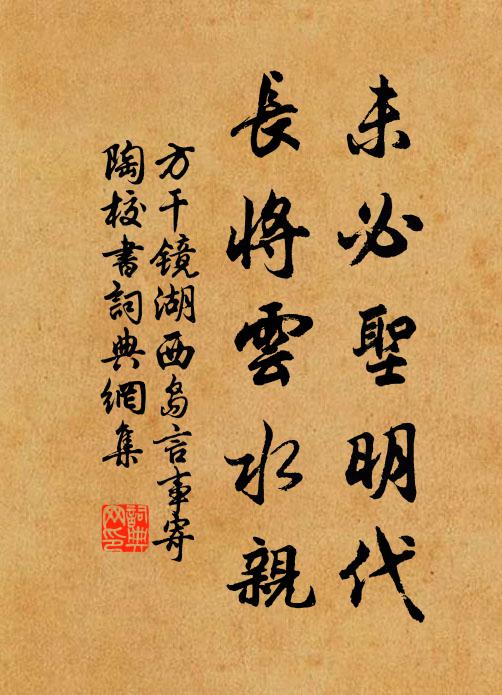 未必聖明代
長將雲水親
方干鏡湖西島言事寄
陶校書詞典網集
詞典网印